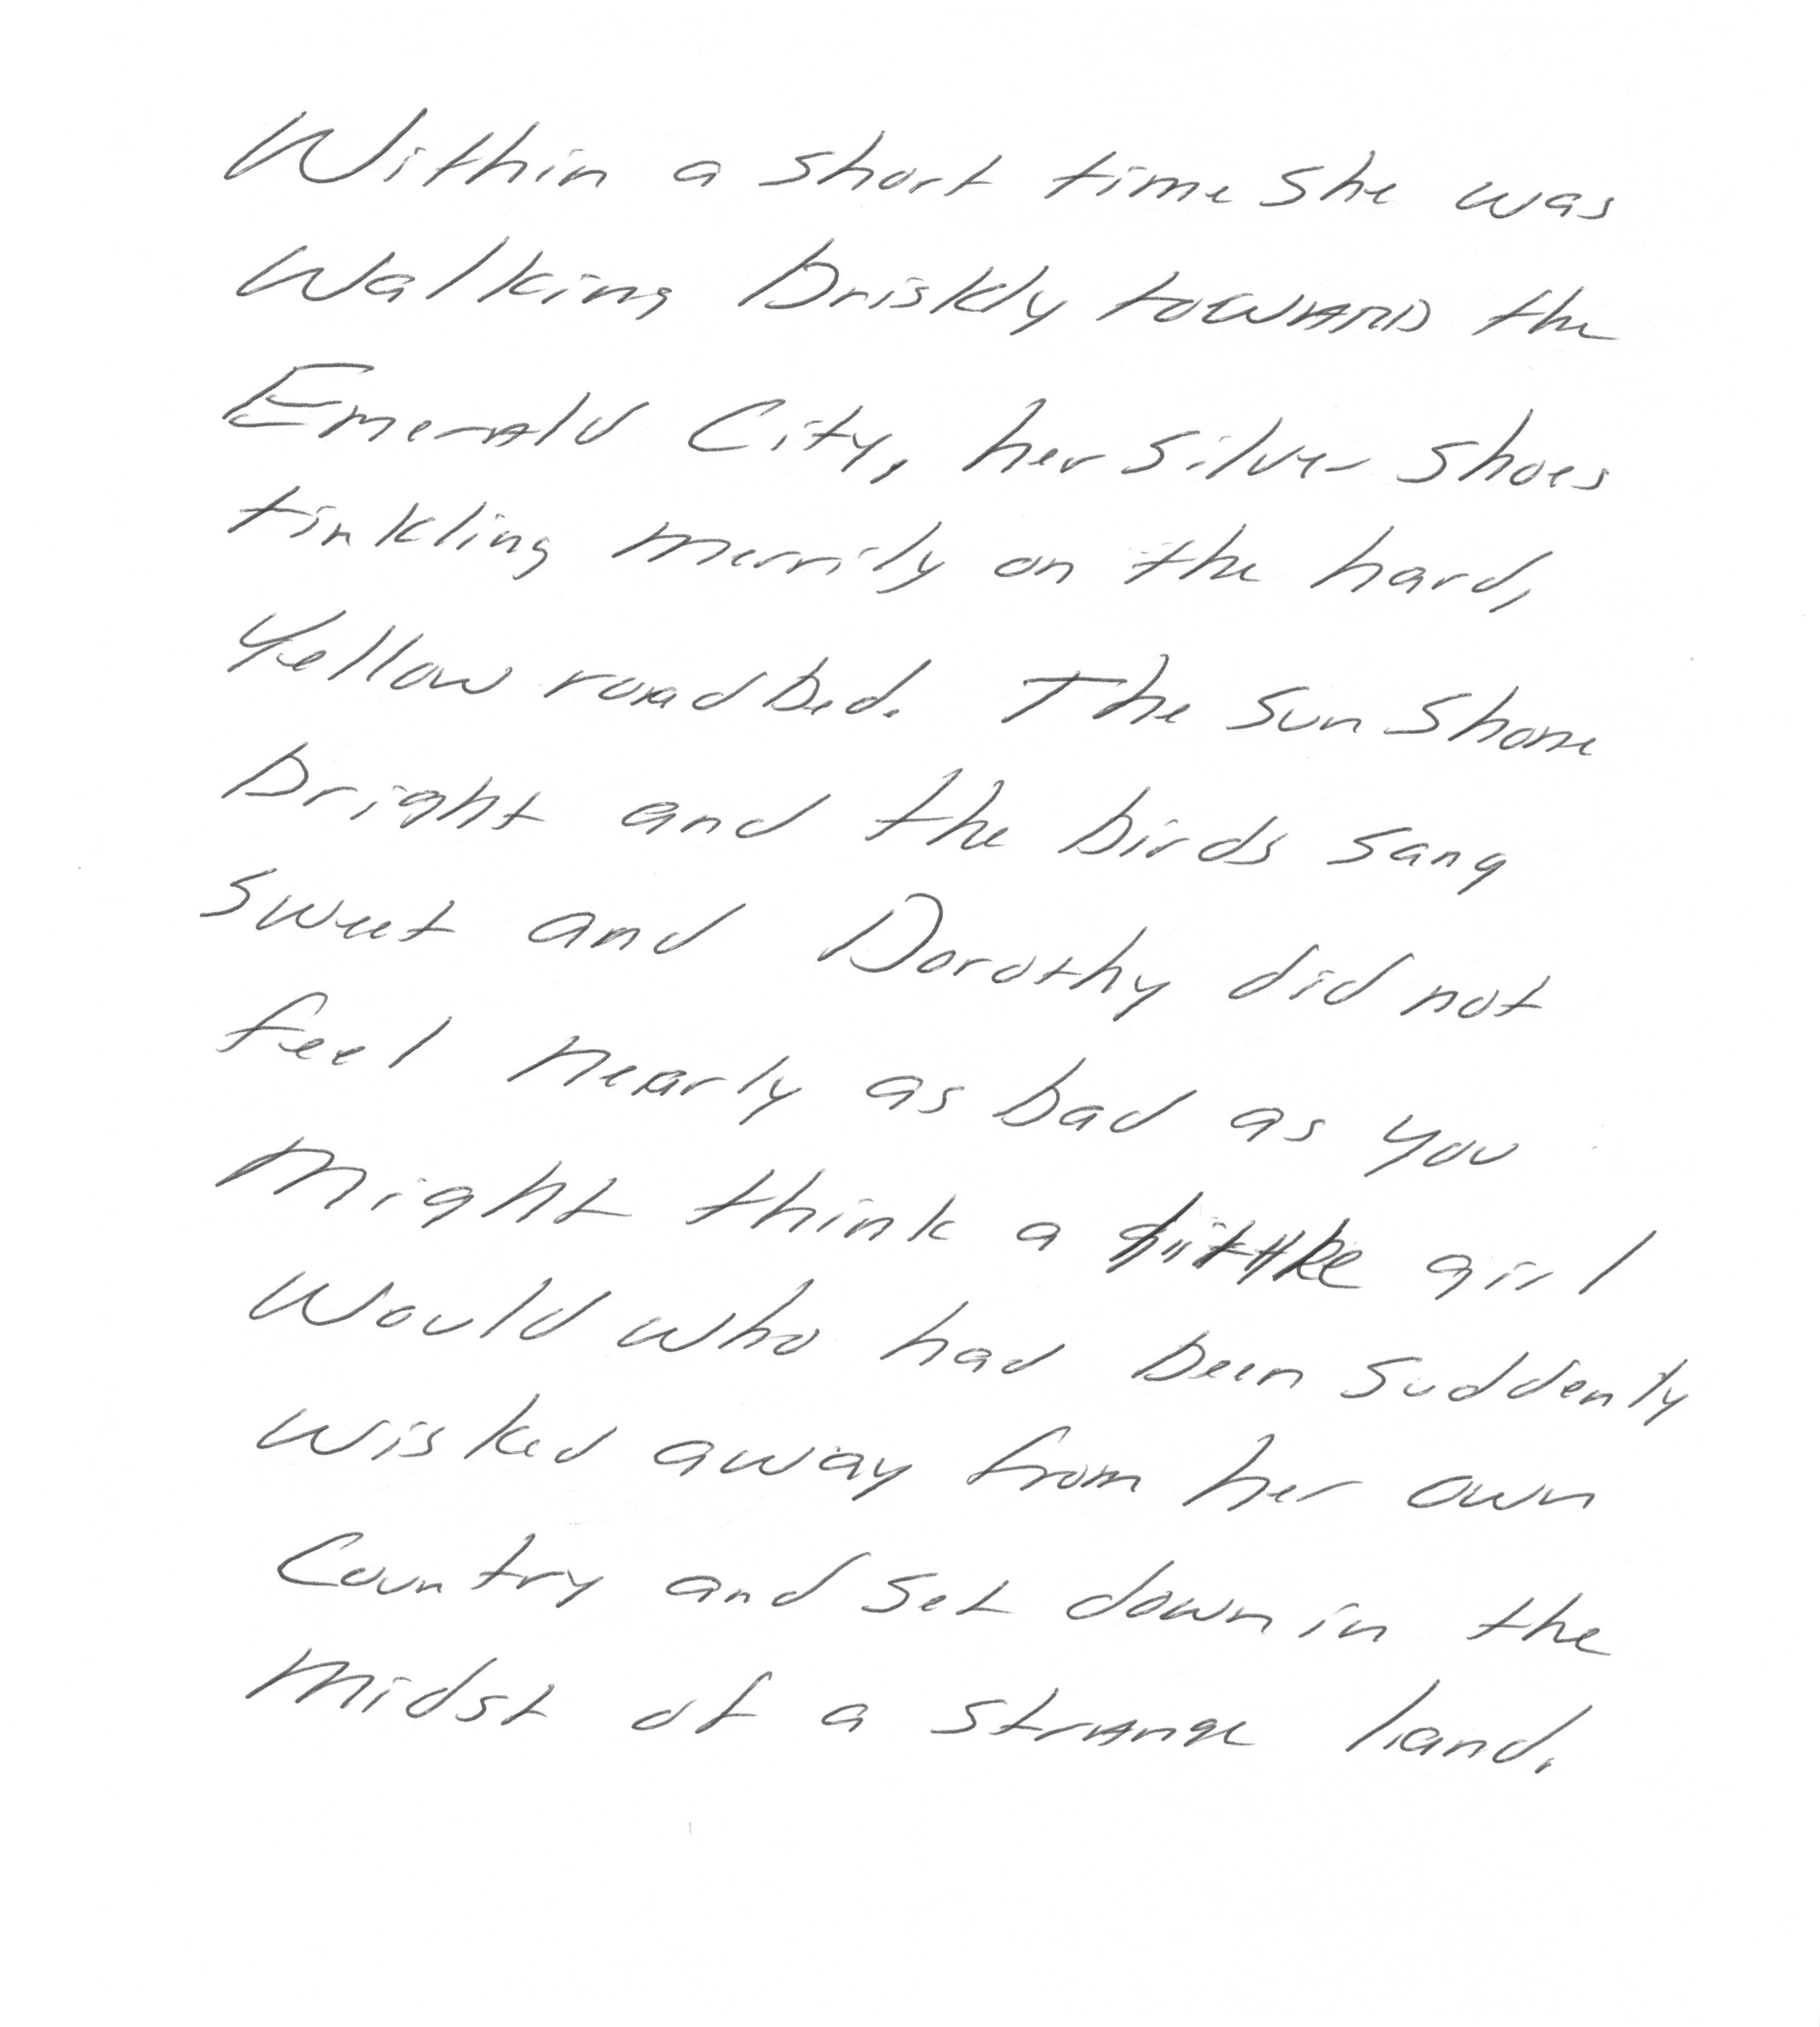 Within a short time she was
Walking briskly toward the
Emerald City, her silver shoes
tinkling merrily on the hard,
Yellow roadbed. The sun shone
bright and the birds sang
sweet and Dorothy did not
feel nearly as bad as you
Might think a little girl
Would who had been suddenly
wisked away from her own
Country and set down in the
Midst of a strange land.